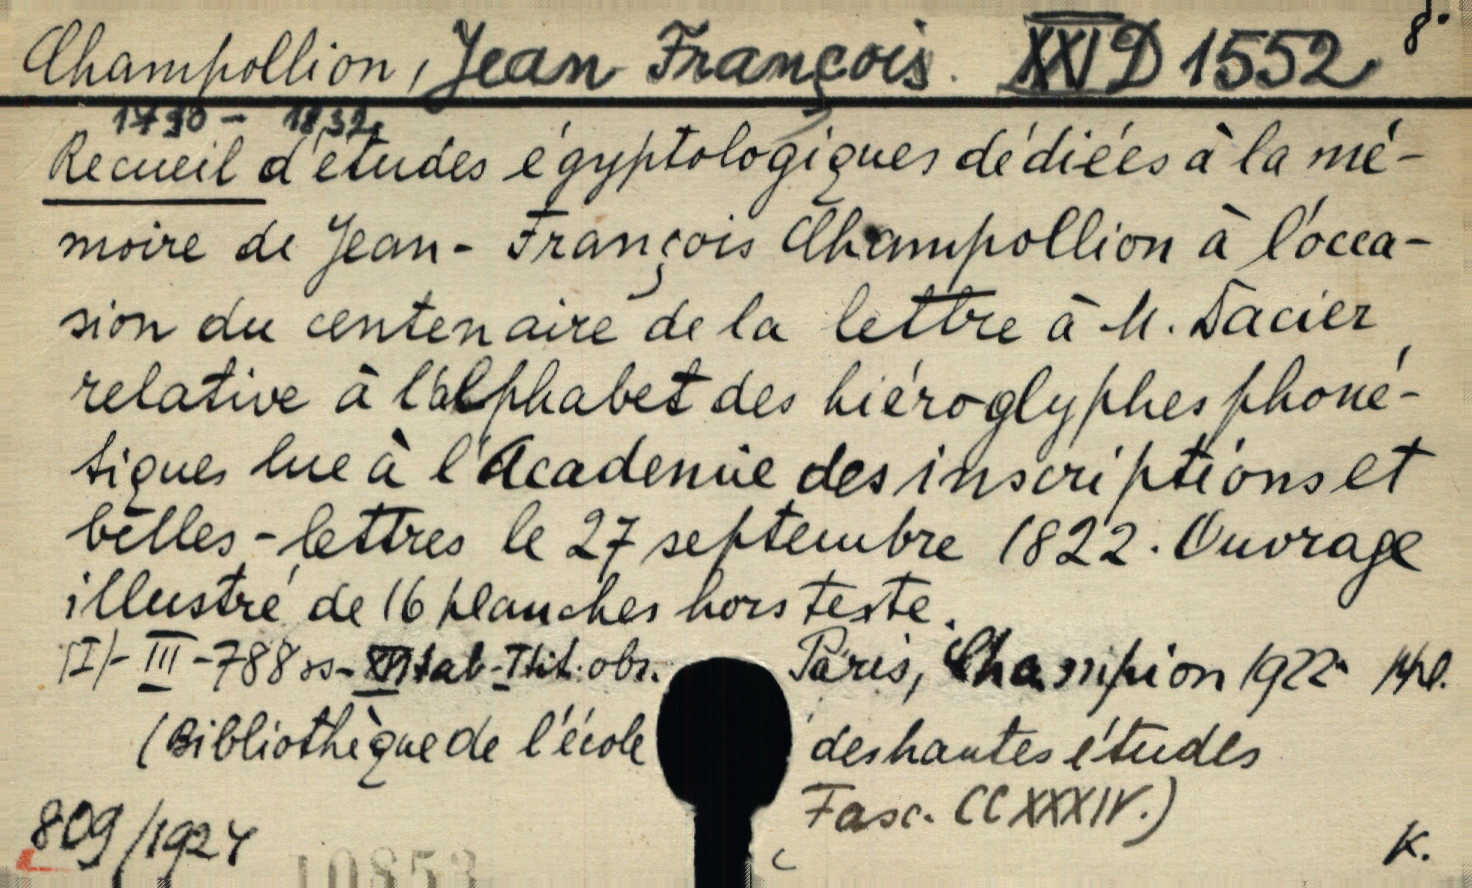 Champollion, Jean François. XXI D 1552 8°
1790 - 1832.
Recueil d'études égyptologiques dédiées à la mé-
moire de Jean-François Champollion à l'occa-
sion du centenaire de la lettre à M. Dacier
relative à l'alphabet des hiéroglyphes phoné-
tiques lue à l'Academie des inscriptions et
belles-lettres le 27 septembre 1822. Ouvrage
illustré de 16 planches hors texte.
(I)-III-788 ss- tab-I tit. obr. Paris, Champion 1922
(Bibliothèque de l'école des hautes études
Fasc. CCXXXIV.)
809/1924 K.
10853